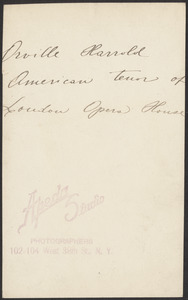 Orville Harrold
American tenor of
London Opera House
Apeda
Studio
PHOTOGRAPHERS
102-104 West 38th St., N.Y.